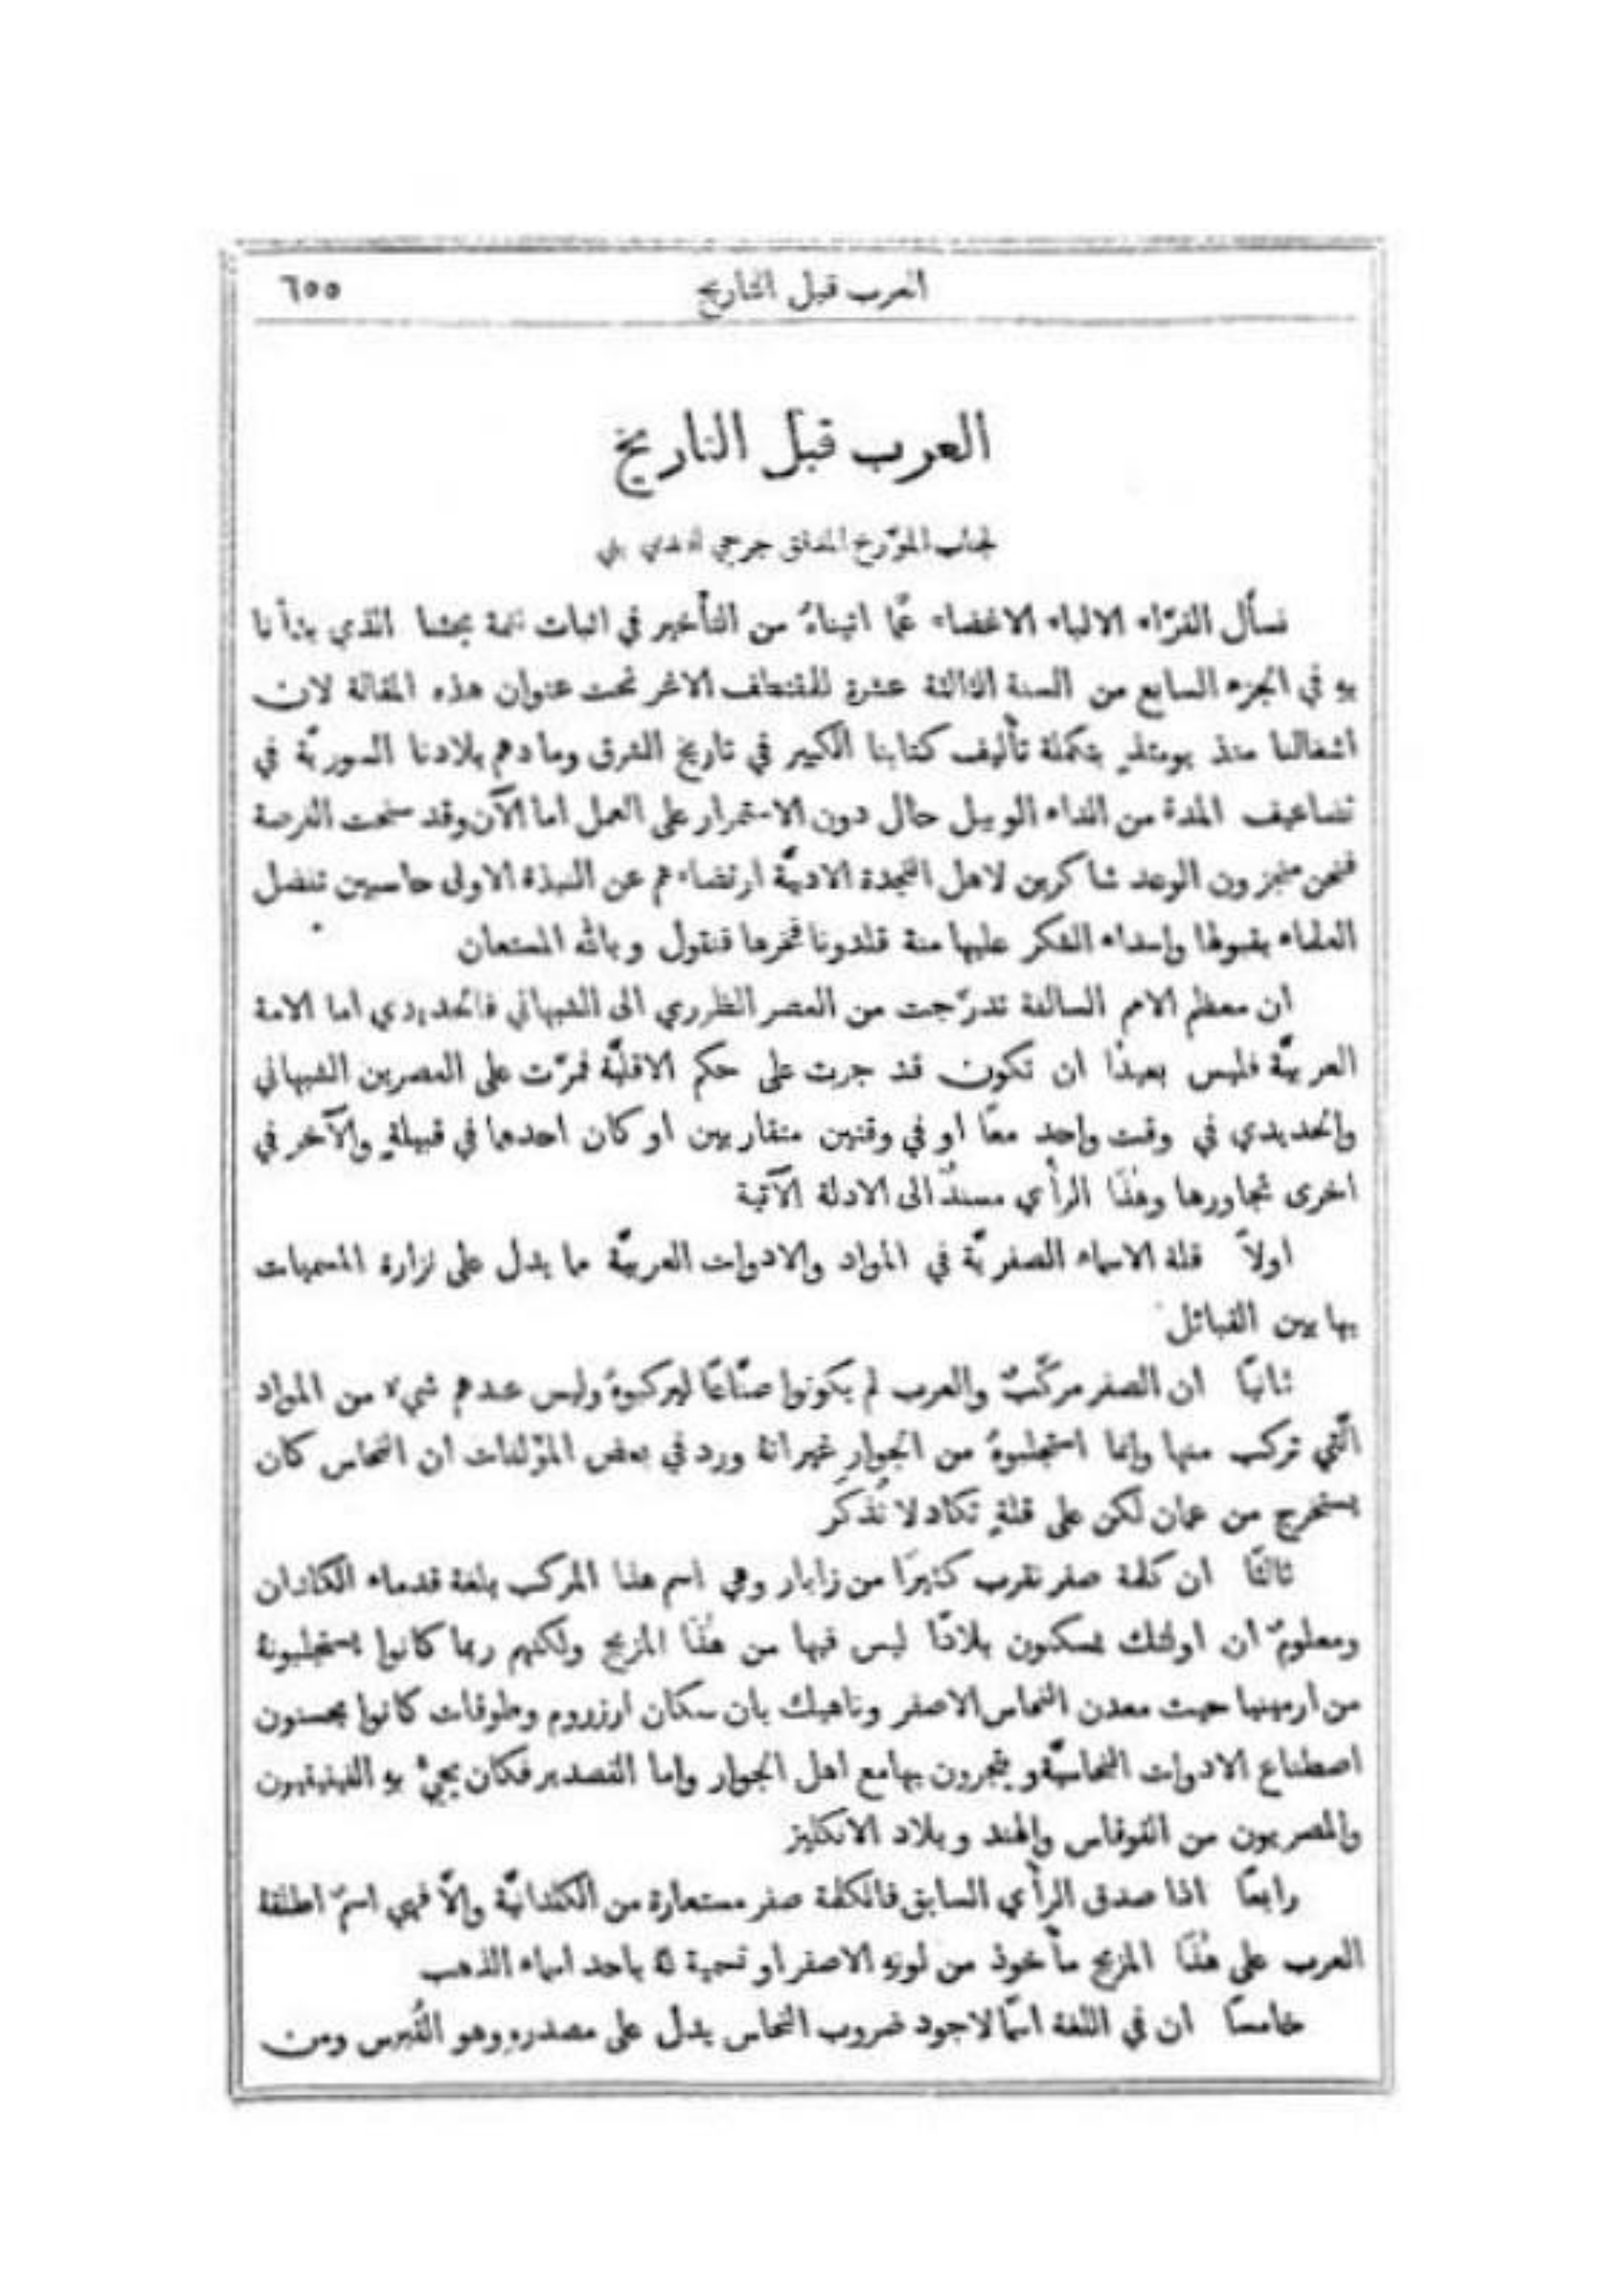 العرب قبل التاريخ ٦٥٥
العرب قبل التاريخ
لجناب المؤرخ المدقق جرجي افندي يني
نسأل القرّاء الالباء الاغضاء عمّا اتيناهُ من التأخير في اثبات تتمة بحثنا الذي بدأنا
بهِ في الجزء السابع من السنة الثالثة عشرة للمقتطف الاغر تحت عنوان هذه المقالة لان
اشغالنا منذ يومئذٍ بتكملة تأليف كتابنا الكبير في تاريخ الشرق وما دهم بلادنا السوريَّة في
تضاعيف المدة من الداء الوبيل حال دون الاستمرار على العمل اما الآن وقد سنحت الفرصة
فنحن منجزون الوعد شاكرين لاهل النجدة الادبيَّة ارتضاءهم عن النبذة الاولى حاسبين تفضل
العلماء بقبولها واسداء الشكر عليها منة قلدونا فخرها فنقول وبالله المستعان
ان معظم الامم السالفة تدرّجت من العصر الظرري الى الشبهاني فالحديدي اما الامة
العربيَّة فليس بعيدًا ان تكون قد جرت على حكم الاقليَّة فمرّت على العصرين الشبهاني
والحديدي في وقت واحد معًا او في وقتين متقاربين او كان احدهما في قبيلةٍ والآخر في
اخرى تجاورها وهٰذا الرأي مسندٌ الى الادلة الآتية
اولاً قلة الاسماء الصفريَّة في المواد والادوات العربيَّة مما يدل على نزارة المسميات
بها بين القبائل
ثانيًا ان الصفر مركَّبٌ والعرب لم يكونوا صنَّاعًا ليركبوهُ وليس عندهم شيء من المواد
الَّتي تركب منها وانما استجلبوهُ من الجوار غير انهُ ورد في بعض المؤلفات ان النحاس كان
يستخرج من عمان لكن على قلةٍ تكاد لا تُذكَر
ثالثًا ان كلمة صفر تقرب كثيرًا من زابار وهي اسم هذا المركب بلغة قدماء الكلدان
ومعلومٌ ان اولئك يسكنون بلادًا ليس فيها من هٰذا المزيج ولكنهم ربما كانوا يستجلبونهُ
من ارمينيا حيث معدن النحاس الاصفر وناهيك بان سكان ارزروم وطوقات كانوا يحسنون
اصطناع الادوات النحاسيَّة ويتجرون بها مع اهل الجوار واما القصدير فكان يجيءُ بهِ الفينيقيون
والمصريون من القوقاس والهند وبلاد الانكليز
رابعًا اذا صدق الرأي السابق فالكلمة صفر مستعارة من الكلدانيَّة والاَّ فهي اسمٌ اطلقهُ
العرب على هٰذا المزيج مأخوذ من لونهِ الاصفر او تسمية لهُ باحد اسماء الذهب
خامسًا ان في اللغة اسمًا لاجود ضروب النحاس يدل على مصدرهِ وهو القُبرس ومن